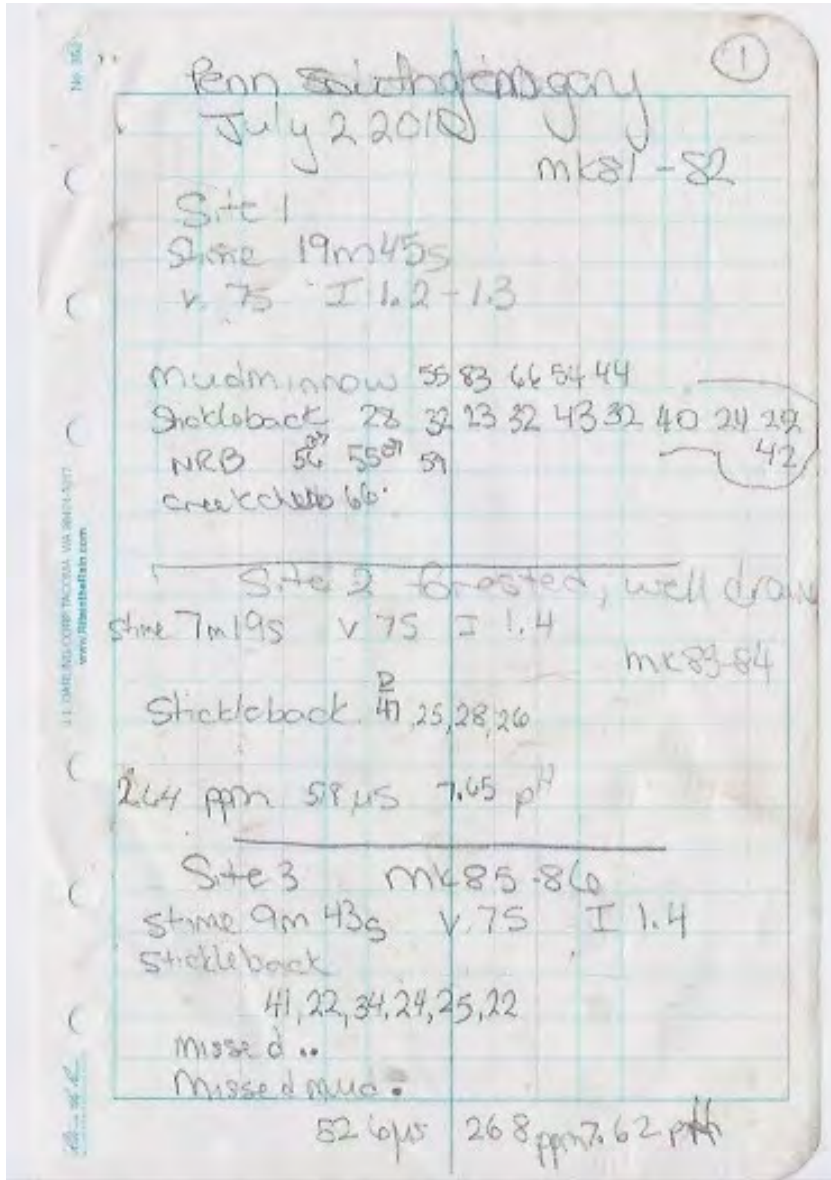 1
Penn
July 2 2010
mk81-82
Site 1
Stime 19m45s
v. 75 I 1.2-1.3
mudminnow 55 83 66 54 44
Stickleback 28 32 23 32 43 32 40 24 29
42
NRB 56 55 59
creek chub 66
Site 2 forested, well draw
stime 7m19s v 75 I 1.4
mk83-84
D
Stickleback 47, 25, 28, 26
264 ppm µS 7.65 pH
Site 3 mk85-86
stime 9m 43s V. 75 I 1.4
stickleback
41, 22, 34, 24, 25, 22
missed ..
Missed mud.
526µs 268 ppm 7.62 pH
J. L. DARLING CORP. TACOMA, WA
www.RiteintheRain.com